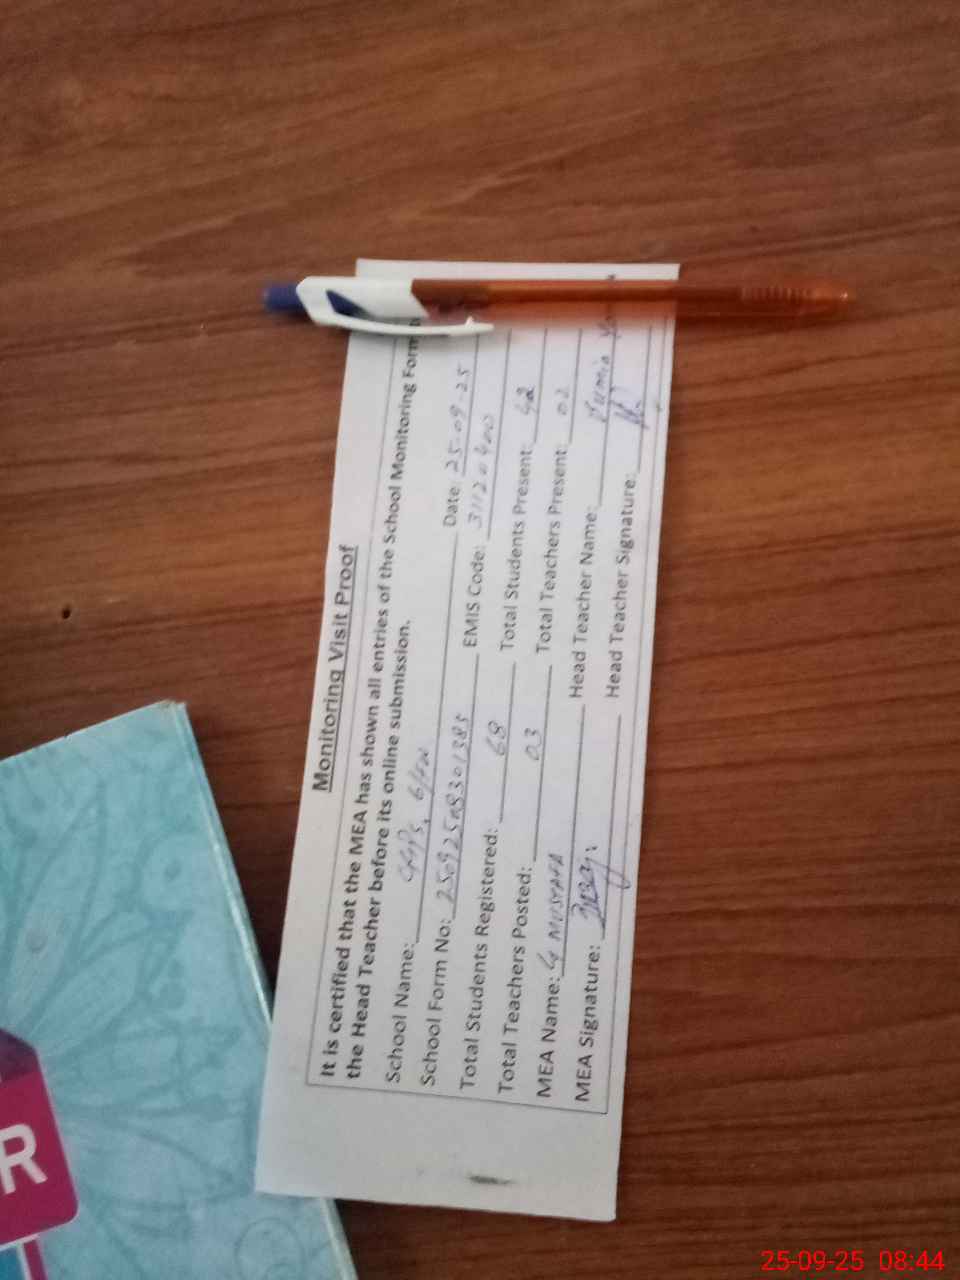 Monitoring Visit Proof
It is certified that the MEA has shown all entries of the School Monitoring Form
the Head Teacher before its online submission.
School Name: GGPS, 6/
Date: 25-09-25
School Form No: 25092508301385 EMIS Code: 31120400
Total Students Registered: 68 Total Students Present: 42
Total Teachers Posted: 03 Total Teachers Present: 02
MEA Name: G MUSTAFA Head Teacher Name:
MEA Signature: Head Teacher Signature:
R
25-09-25 08:44